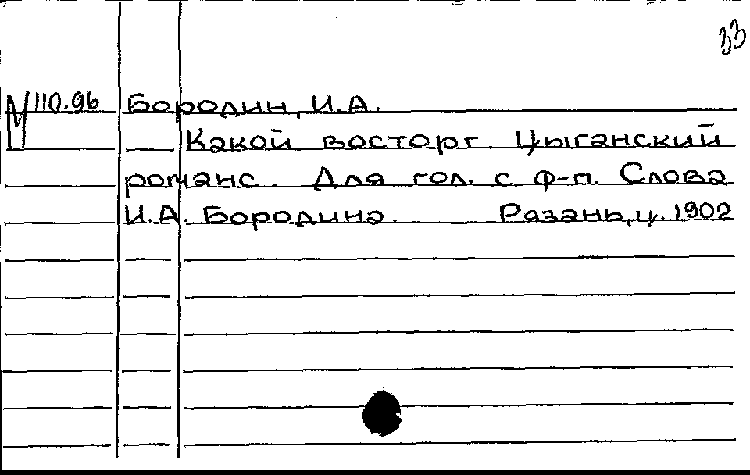 33
М 110.96 Бородин, И.А.
Какой восторг. Цыганский
романс. Для гол. с ф-п. Слова
И.А. Бородина. Рязань, ц. 1902